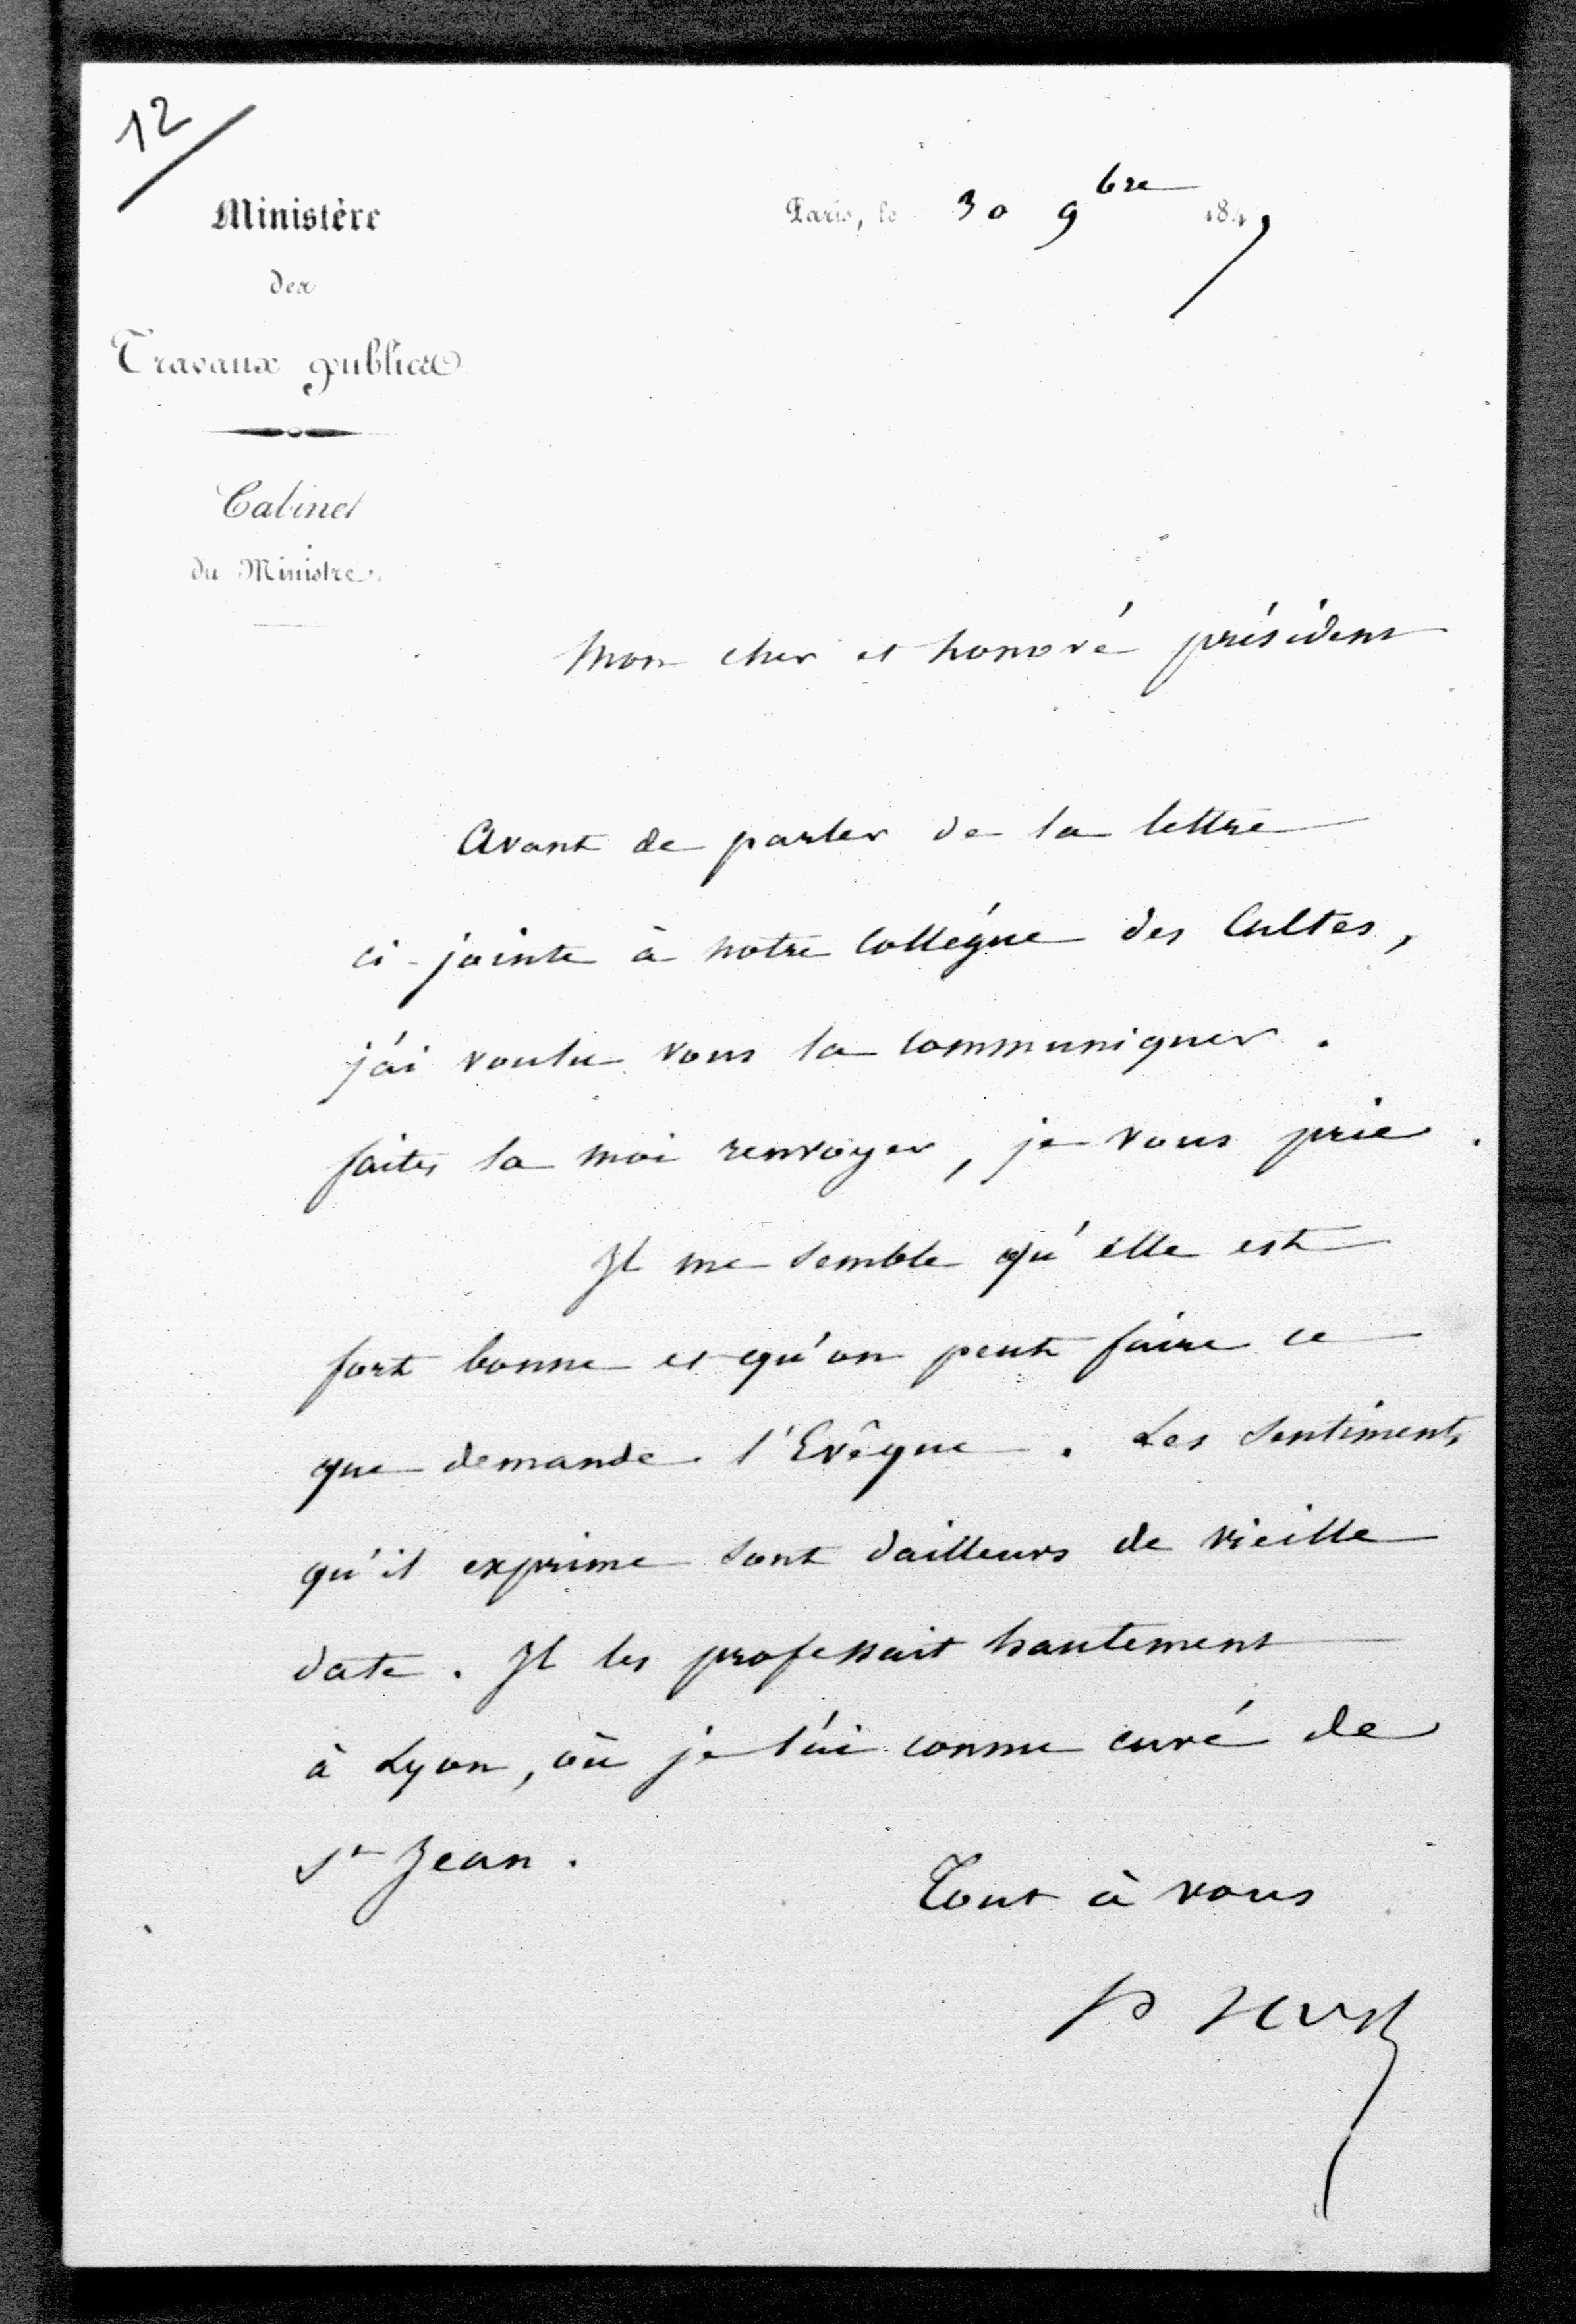 12
Ministère
des
Travaux publics
Cabinet
du Ministre.
Paris, le 30 9bre 1847
Mon cher et honoré président
Avant de parler de la lettre
ci-jointe à notre Collègue des Cultes,
j'ai voulu vous la communiquer.
faites la moi renvoyer, je vous prie.
Il me semble qu'elle est
fort bonne et qu'on peut faire ce
que demande l'Evêque. Les Sentiments
qu'il exprime sont d'ailleurs de vieille
date. Il les professait hautement
à Lyon, où je l'ai connu curé de
St Jean.
Tout à vous